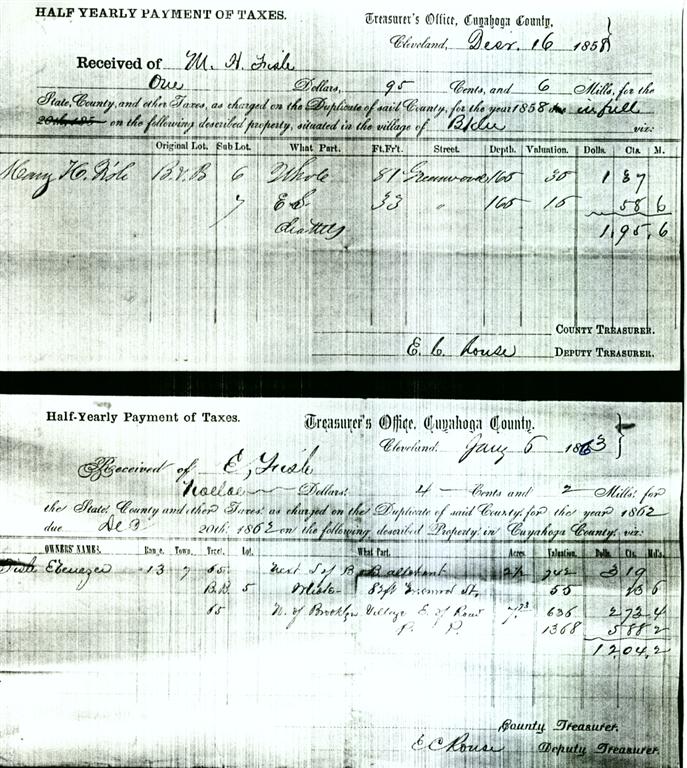 HALF YEARLY PAYMENT OF TAXES.
Treasurer's Office, Cuyahoga County,
Cleveland, Decr. 16 1858
Received of M. H. Fish
One Dollars, 95 Cents, and 6 Mills, for the
State, County, and other Taxes, as charged on the Duplicate of said County, for the year 1858 in full
on the following described property, situated in the village of Bkln viz:
Original Lot. Sub Lot. What Part. Ft.Fr't. Street. Depth. Valuation. Dolls. Cts. M.
Mary H. Fish B.V.B 6 Whole 81 Greenwood 165 35 1 37
7 E S 33 " 165 15 58 6
Chattels 1,95,6
COUNTY TREASURER.
E. C. Rouse DEPUTY TREASURER.
Half-Yearly Payment of Taxes.
Treasurer's Office, Cuyahoga County.
Cleveland. Jany 6 1863
Received of E, Fish
Twelve Dollars: 4 Cents and 2 Mills: for
the State: County and other Taxes: as charged on the Duplicate of said County: for the year 1862
due Dec 20th: 1862 on the following described Property: in Cuyahoga County: viz:
OWNERS' NAMES. Range. Town. Tract. Lot. What Part. Acres. Valuation. Dolls. Cts. Md's.
Fish Ebenezer 13 7 65 next S of B 2 1/2 742 3 19
B.B. 5 55 23 6
65 N. of Brooklyn Village E. of Road 7.73 636 2 73 4
P. P. 1368 5 88 2
12,04,2
County Treasurer.
E C Rouse Deputy Treasurer.